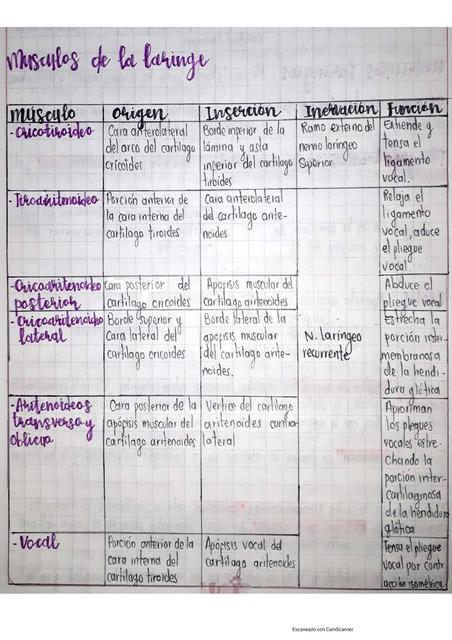 Musculos de la laringe
Músculo Origen Inserción Inervación Función
- Cricotiroideo
Cara anterolateral
del arco del cartilago
cricoides
Borde inferior de la
lámina y asta
inferior del cartilago
tiroides
Ramo externo del
nervio laríngeo
superior.
Extiende y
tensa el
ligamento
vocal.
- Tiroaritenoideo
Porción anterior de
la cara interna del
cartilago tiroides
Cara anterolateral
del cartilago arite-
noides
Relaja el
ligamento
vocal, aduce
el pliegue
vocal.
- Cricoaritenoideo
posterior
Cara posterior del
cartilago cricoides
Apofisis muscular del
cartilago aritenoides
Abduce el
pliegue vocal
- Cricoaritenoideo
lateral
Borde superior y
cara lateral del
cartilago cricoides
Borde lateral de la
apofisis muscular
del cartilago arite-
noides.
N. laríngeo
recurrente
Estrecha la
porción inter-
membranosa
de la hendi-
dura glótica
- Aritenoideos
transverso y
oblicuo
Cara posterior de la
apófisis muscular del
cartilago aritenoides
Vertice del cartilago
aritenoides contra
lateral
Aproximan
los pliegues
vocales estre-
chando la
porción inter-
cartilaginosa
de la hendidura
glótica
- Vocal
Porción anterior de la
cara interna del
cartilago tiroides
Apofisis vocal del
cartilago aritenoides
Tensa el pliegue
vocal por contr
acción isométrica.
Escaneado con CamScanner